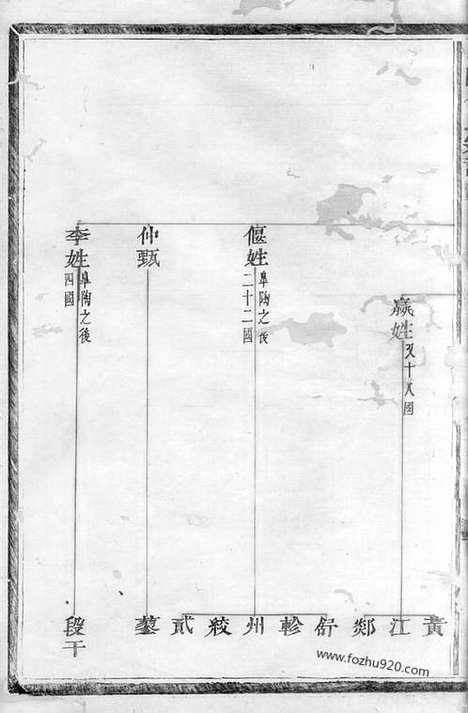 嬴姓
又十八國
偃姓
皋陶之後
二十二國
仲甄
李姓
皋陶之後
四國
黃
江
郯
舒
軫
州
絞
貳
段干
www.fozhu920.com